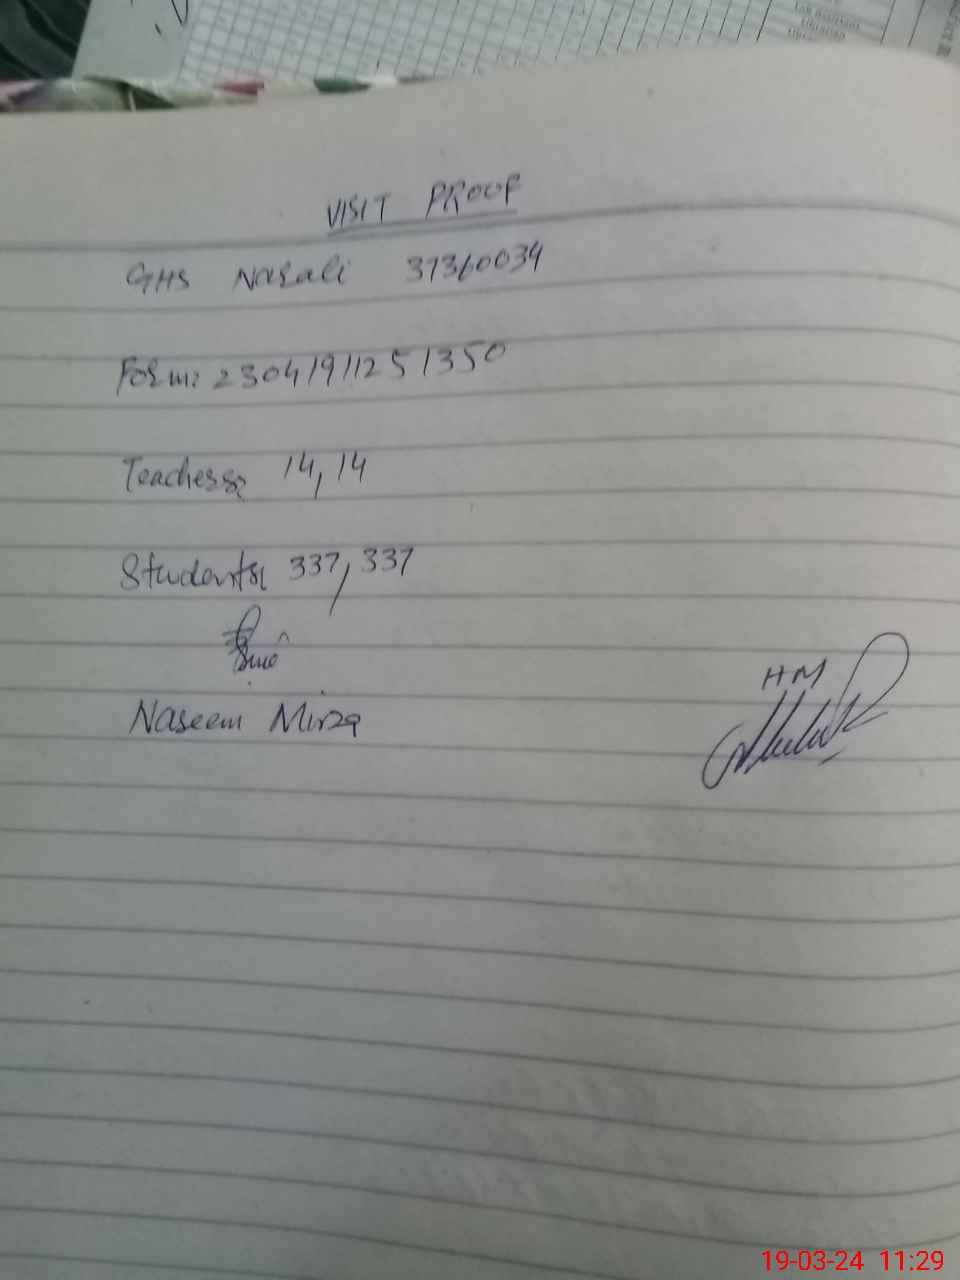 Lab Assistant
VISIT PROOF
GHS Narali 37360034
Form: 23041911251350
Teachers: 14, 14
Students: 337, 337
Naseem Mirza
HM
19-03-24 11:29